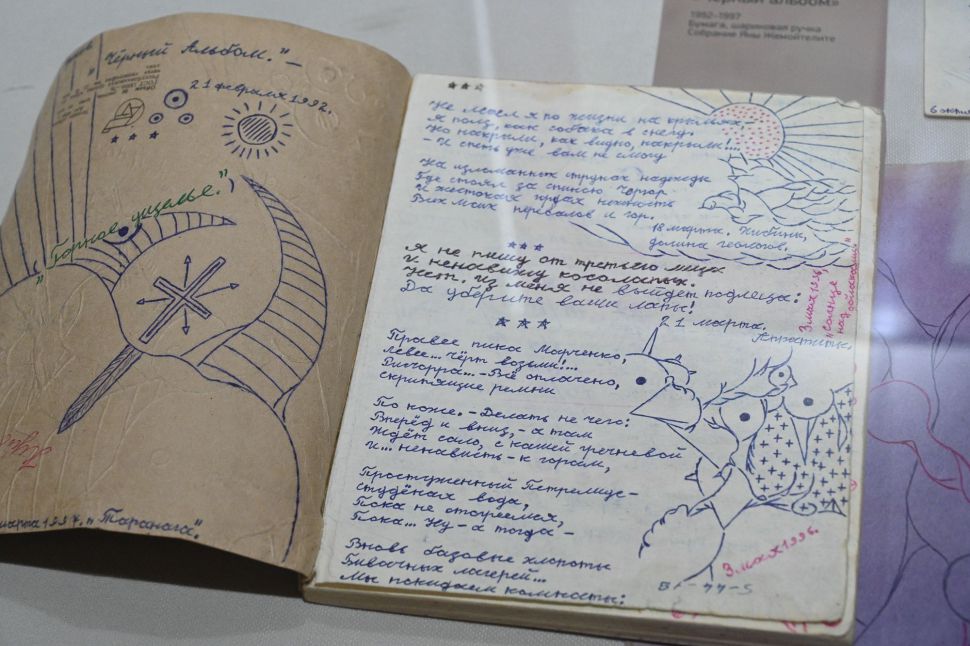 «Чёрный альбом»
1992–1997
Бумага, шариковая ручка
Собрание Яны Жемойтелите
„Чёрный Альбом." –
21 февраля 1992.
„Горное ущелье."
марта 1997, п "Таранага".
Не летел я по жизни на крыльях, –
Я полз, как собака в снегу.
Но накрыли, как видно, накрыли!...
– И спеть уже вам не смогу
На изломанных струнах надежды
Где стоял за спиною Чоргор
И жестоких нежность
Всех моих перевалов и гор.
18 марта. Хибины,
долина геологов.
***
Я не пишу от третьего лица
И ненавижу косолапых.
Нет, из меня не выйдет подлеца:
Да уберите ваши лапы!
***
21 марта.
Апатиты.
Правее пика Марченко,
Левее... Чёрт возьми!...
Рисчорра... – Всё оплачено,
скрипящие ремни
По коже. – Делать не чего:
Вперёд и вниз, – а там
Ждёт сало, с кашей гречневой
И... ненависть – к горам,
Простуженный Петрелиус –
студёная вода,
Пока не отогреемся,
Пока... Ну – а тогда –
Вновь базовые хлопоты
Бивачных лагерей...
Мы покидаем комнаты:
3 мая 1996.
"Солнце
над
3 мая 1996.